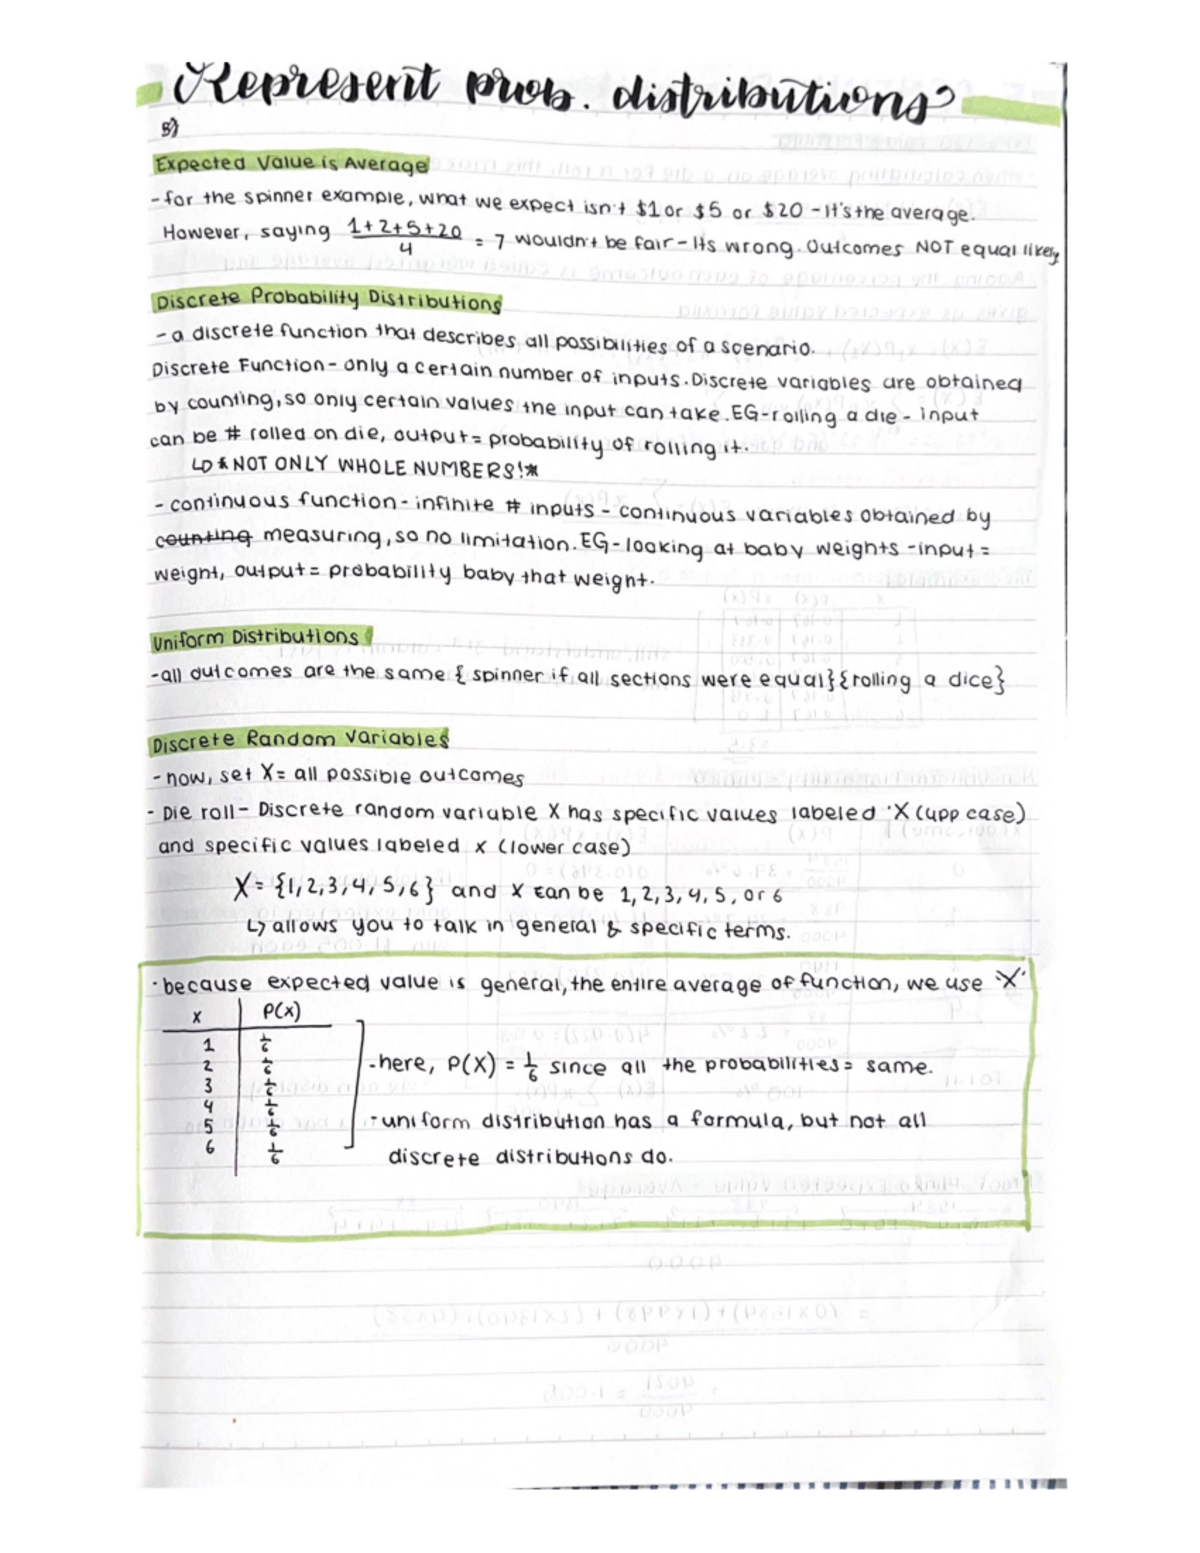 Represent prob. distributions
B)
Expected Value is Average
- for the spinner example, what we expect isn't $1 or $5 or $20 - It's the average.
However, saying 1+2+5+20/4 = 7 wouldn't be fair - its wrong. Outcomes NOT equal likely
Discrete Probability Distributions
- a discrete function that describes all possibilities of a scenario.
Discrete Function - only a certain number of inputs. Discrete variables are obtained
by counting, so only certain values the input can take. EG - rolling a die - input
can be # rolled on die, output = probability of rolling it.
↳ * NOT ONLY WHOLE NUMBERS! *
- continuous function - infinite # inputs - continuous variables obtained by
counting measuring, so no limitation. EG - looking at baby weights - input =
weight, output = probability baby that weight.
Uniform Distributions
- all outcomes are the same { spinner if all sections were equal} {rolling a dice}
Discrete Random Variables
- now, set X = all possible outcomes
- Die roll - Discrete random variable X has specific values labeled 'X (upp case)
and specific values labeled x (lower case)
X = {1,2,3,4,5,6} and x can be 1,2,3,4,5, or 6
↳ allows you to talk in general & specific terms.
· because expected value is general, the entire average of function, we use 'X'
x P(x)
1 1/6
2 1/6
3 1/6
4 1/6
5 1/6
6 1/6
- here, P(X) = 1/6 since all the probabilities = same.
- uniform distribution has a formula, but not all
discrete distributions do.